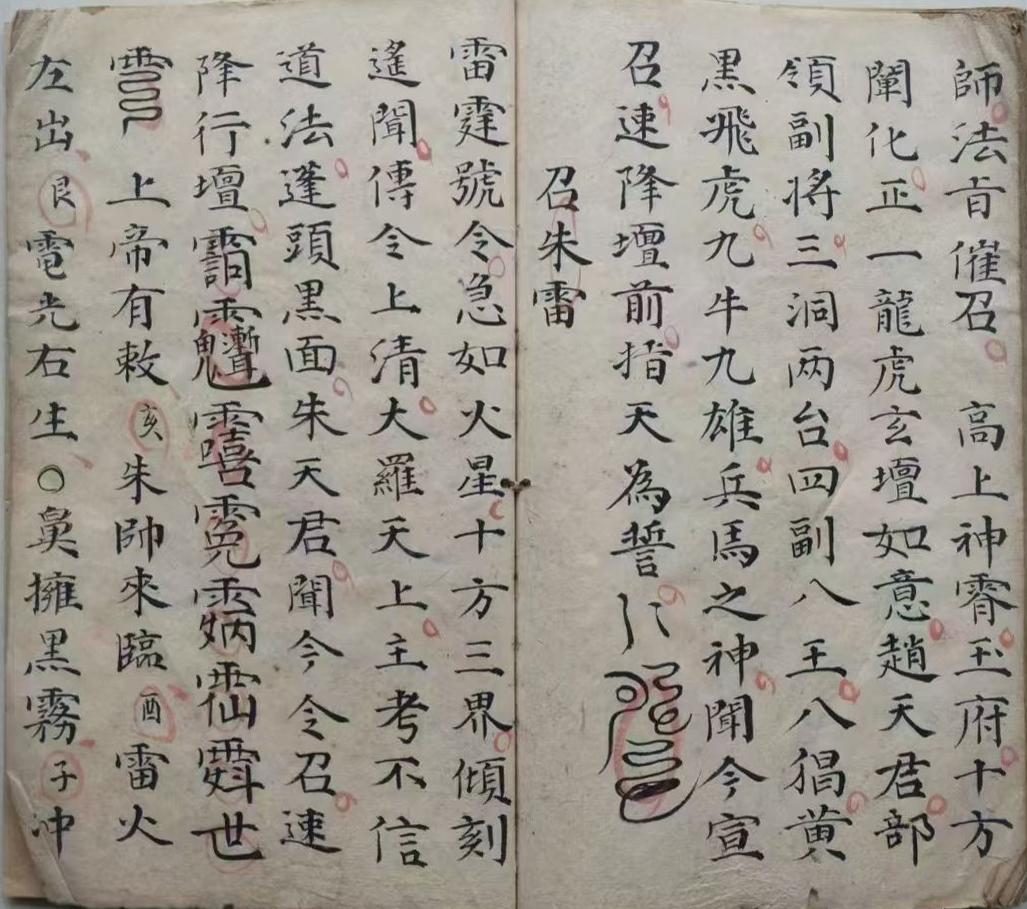 師法旨催召 高上神霄玉府十方
闡化正一龍虎玄壇如意趙天君部
領副将三洞两台四副八王八猖黄
黑飛虎九牛九雄兵馬之神聞今宣
召速降壇前指天為誓
召朱雷
雷霆號令急如火星十方三界傾刻
遙聞傳令上清大羅天上主考不信
道法蓬頭黑面朱天君聞今令召速
降行壇世
上帝有敕亥朱帥來臨酉雷火
左出艮電光右生〇鼻擁黑霧子冲